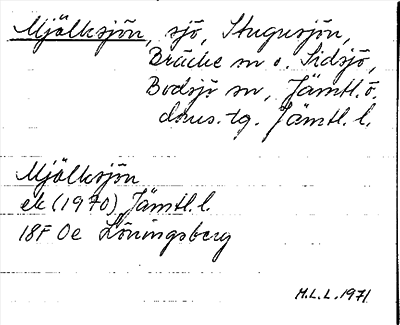 Mjölksjön, sjö, Stugusjön,
Bräcke sn o. Sidsjö,
Bodsjö sn, Jämtl. ö.
doms. tg. Jämtl. l.
Mjölksjön
ek (1970) Jämtl. l.
18F Oe Löningsberg
M.L.L. 1971